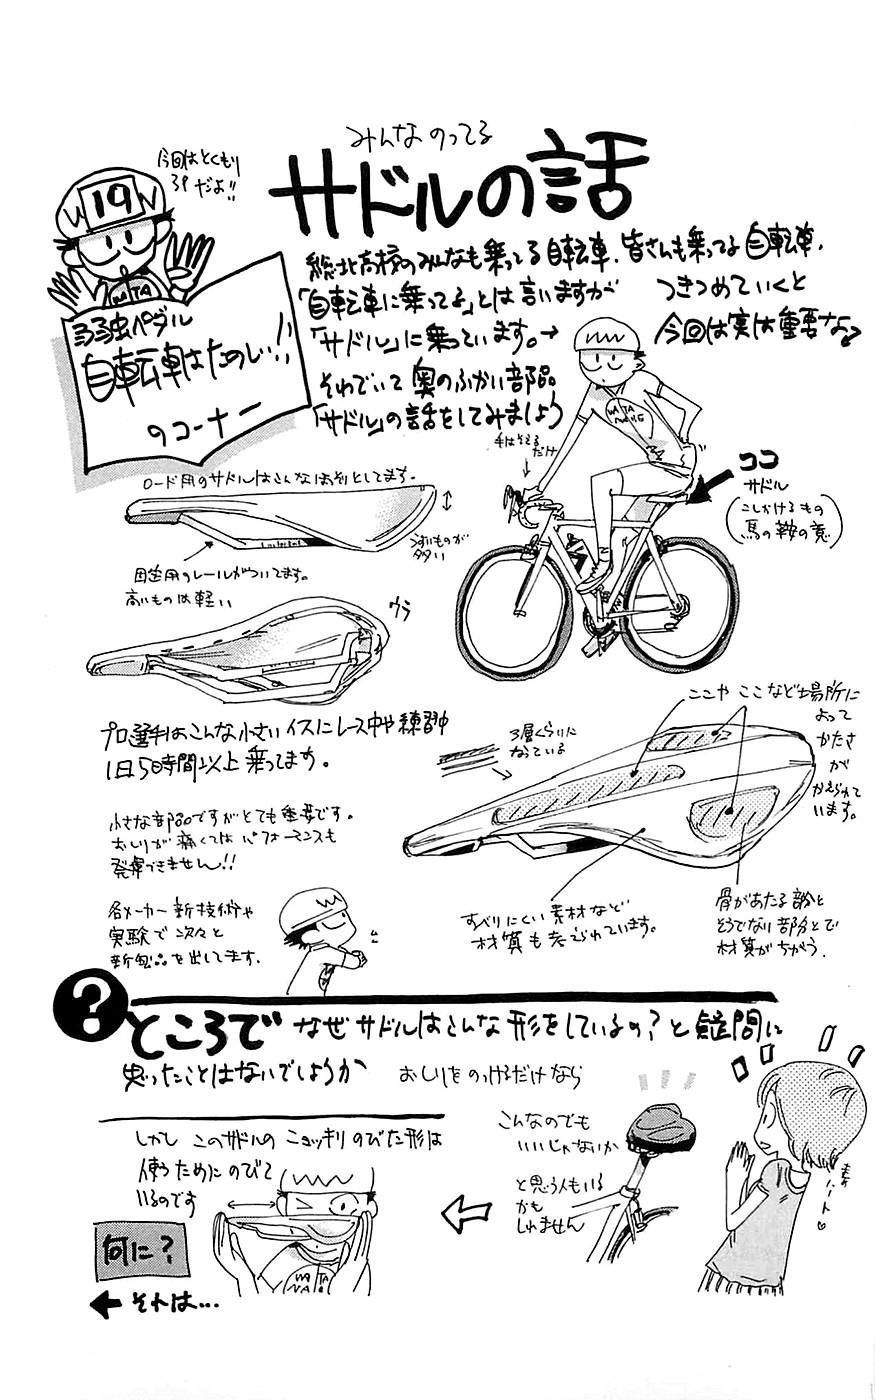 みんなのってる
サドルの話
今回はとくもり
3Pだよ!!
W 19 N
WATA
弱虫ペダル
自転車はたのしい!!
のコーナー
総北高校のみんなも乗ってる自転車、皆さんも乗ってる自転車、
「自転車に乗ってる」とは言いますが つきつめていくと
「サドル」に乗っています。→ 今回は実は重要な
それでいて奥のふかい部品
「サドル」の話をしてみましょう
手はそえる
だけ
ココ
サドル
(こしかけるもの
馬の鞍の意)
ロード用のサドルはこんなほそりとしてます。
うすいものが
多い
固定用のレールがついてます。
高いものは軽い
ウラ
プロ選手はこんな小さいイスにレース中や練習中
1日5時間以上乗ってます。
小さな部品ですがとても重要です。
おしりが痛くてはパフォーマンスも
発揮できません!!
各メーカー新技術や
実験で次々と
新型を出してます。
3層くらいに
なっている
ここやここなど場所に
よって
かたさ
が
かえられて
います。
すべりにくい素材など
材質も考えられています。
骨があたる部分と
そうでない部分とで
材質がちがう。
?
ところで なぜサドルはこんな形をしているの?と疑問に
思ったことはないでしょうか おしりをのっけるだけなら
こんなのでも
いいじゃないか
と思う人もいる
かも
しれません
しかし このサドルの ニョッキリのびた形は
使うためにのびて
いるのです
WATA
NABE
何に?
←それは…